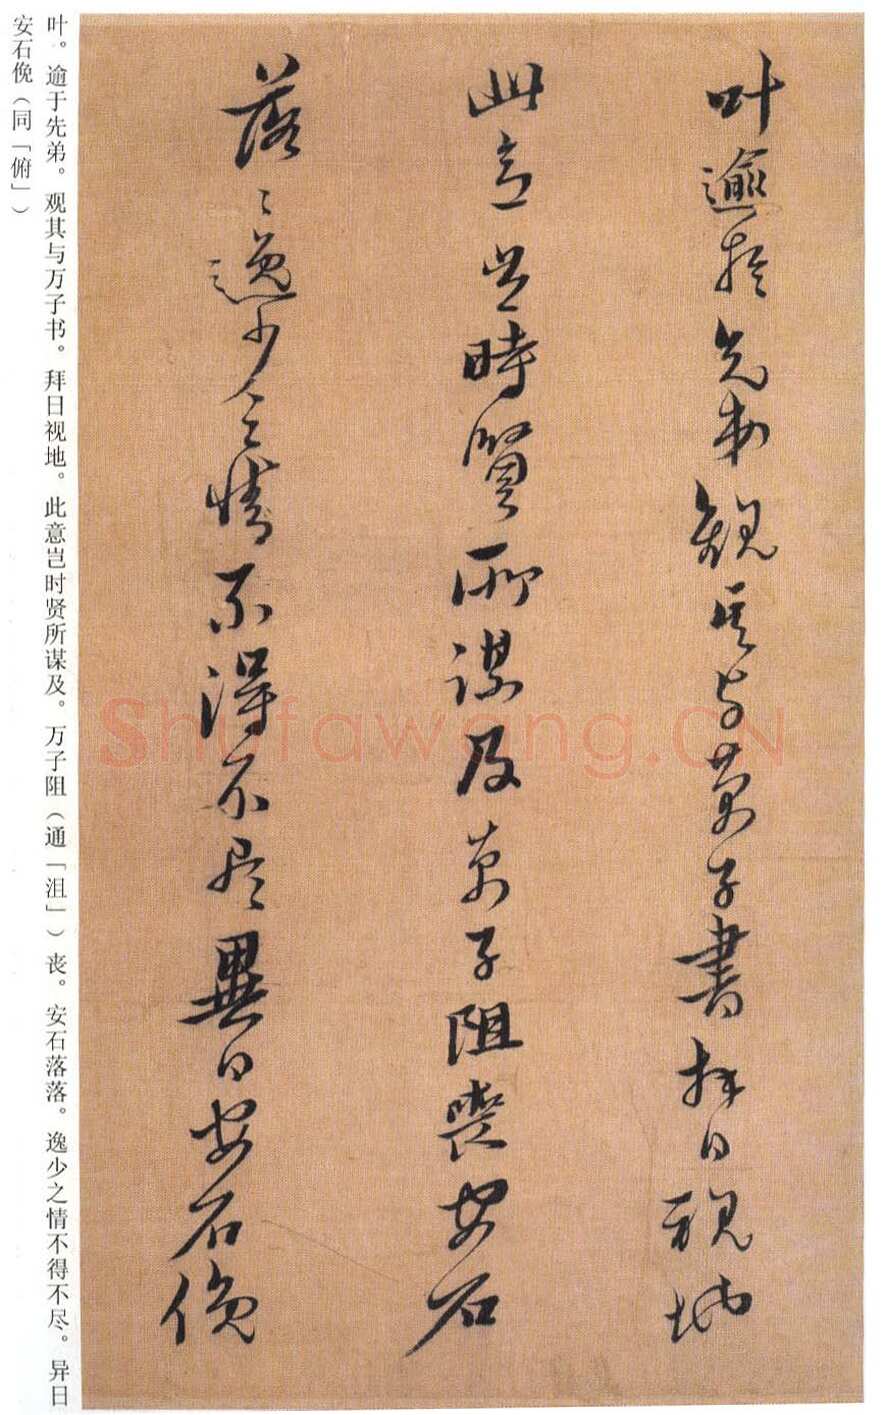 叶逾於先弟觀其与萬子書拜日視地
此意豈時賢所謀及萬子阻喪安石
落〻逸少之情不得不尽異日安石俛
叶。逾于先弟。观其与万子书。拜日视地。此意岂时贤所谋及。万子阻（通「沮」）丧。安石落落。逸少之情不得不尽。异日
安石俛（同「俯」）
Shufawang.CN